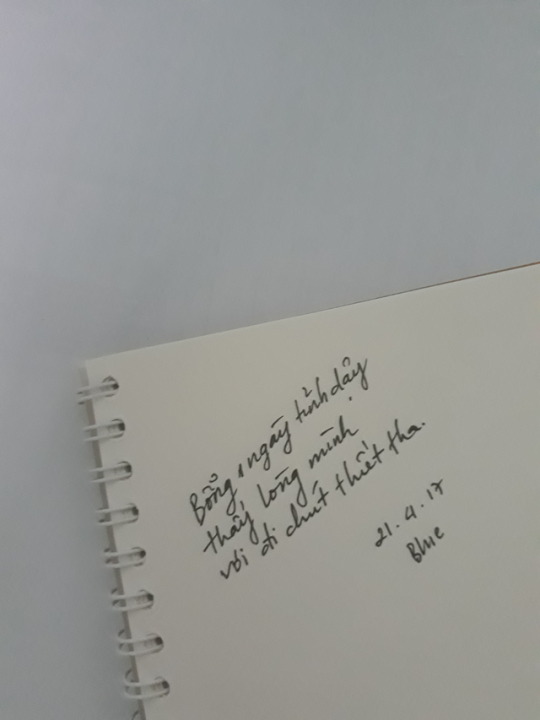 Bỗng 1 ngày tỉnh dậy
thấy lòng mình
vơi đi chút thiết tha.
21.4.17
Blue